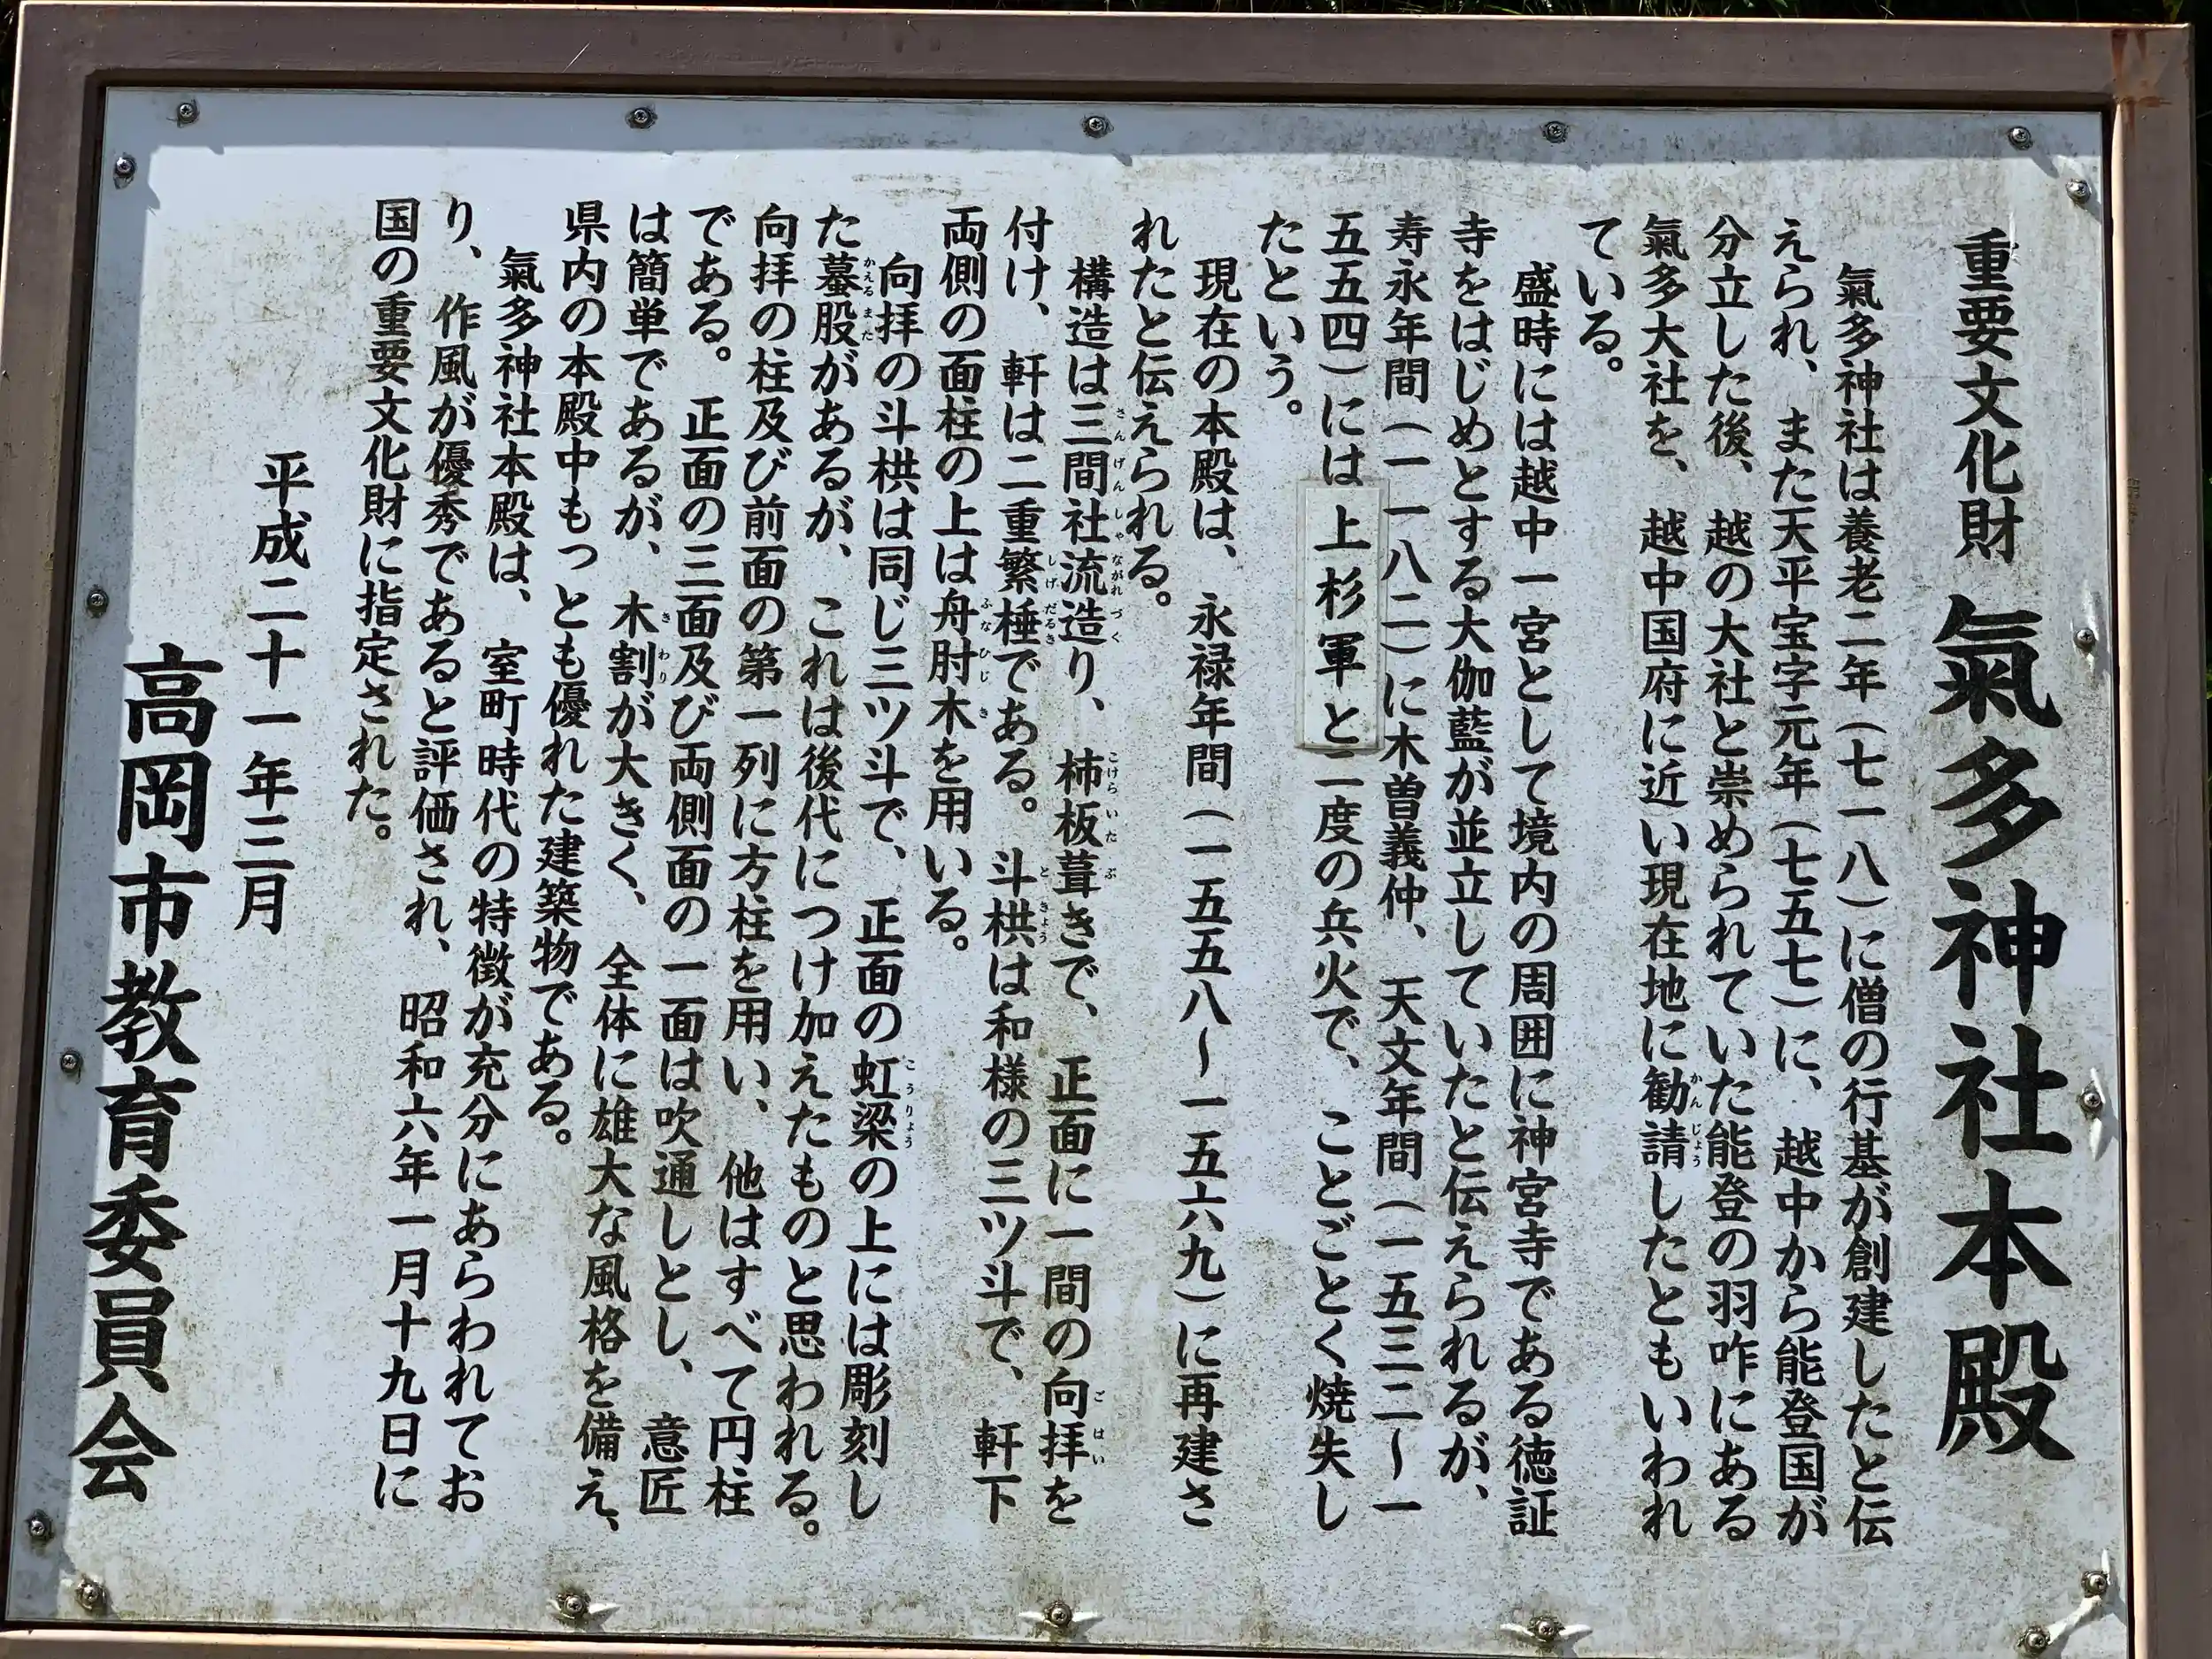 重要文化財 氣多神社本殿
氣多神社は養老二年(七一八)に僧の行基が創建したと伝
えられ、また天平宝字元年(七五七)に、越中から能登国が
分立した後、越の大社と崇められていた能登の羽咋にある
氣多大社を、越中国府に近い現在地に勧請したともいわれ
ている。
盛時には越中一宮として境内の周囲に神宮寺である徳証
寺をはじめとする大伽藍が並立していたと伝えられるが、
寿永年間(一一八二)に木曽義仲、天文年間(一五三二~一
五五四)には上杉軍と二度の兵火で、ことごとく焼失し
たという。
現在の本殿は、永禄年間(一五五八~一五六九)に再建さ
れたと伝えられる。
構造は三間社流造り、柿板葺きで、正面に一間の向拝を
付け、軒は二重繁棰である。斗栱は和様の三ツ斗で、軒下
両側の面柱の上は舟肘木を用いる。
向拝の斗栱は同じ三ツ斗で、正面の虹梁の上には彫刻し
た蟇股があるが、これは後代につけ加えたものと思われる。
向拝の柱及び前面の第一列に方柱を用い、他はすべて円柱
である。正面の三面及び両側面の一面は吹通しとし、意匠
は簡単であるが、木割が大きく、全体に雄大な風格を備え、
県内の本殿中もっとも優れた建築物である。
氣多神社本殿は、室町時代の特徴が充分にあらわれてお
り、作風が優秀であると評価され、昭和六年一月十九日に
国の重要文化財に指定された。
平成二十一年三月
高岡市教育委員会